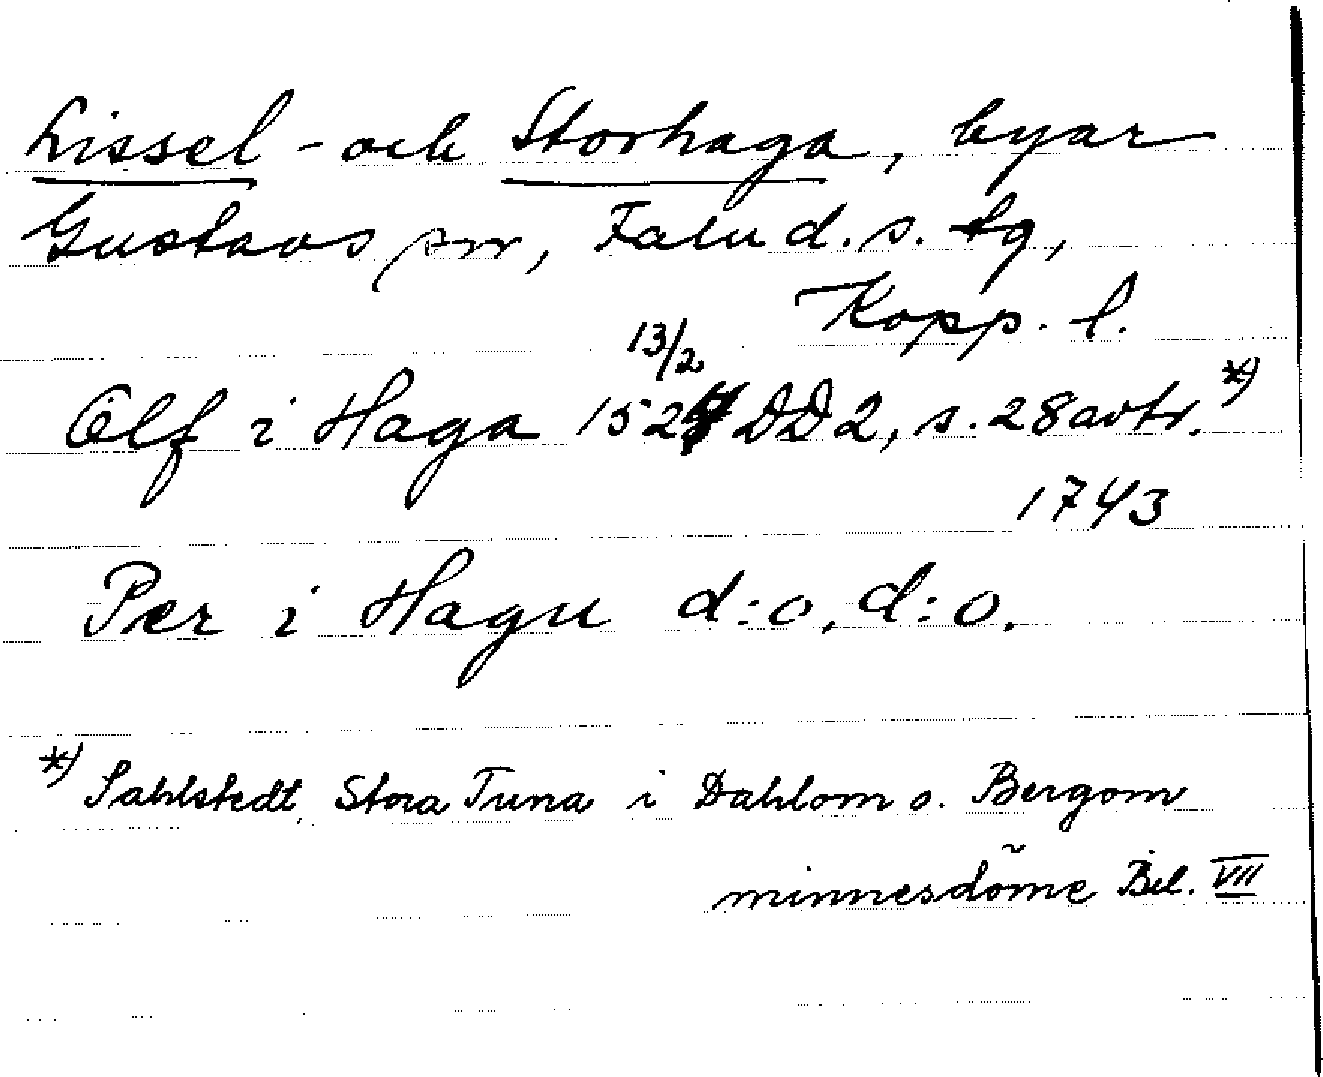 Lissel - och Storhaga, byar
Gustavs sn, Falu d. s. tg,
Kopp. l.
13/2
Olf i Haga 1524 DD2, s. 28 avtr. *)
1743
Per i Hagu d:o, d:o.
*) Sahlstedt, Stora Tuna i Dahlom o. Bergom
minnesdöme Bil. VII